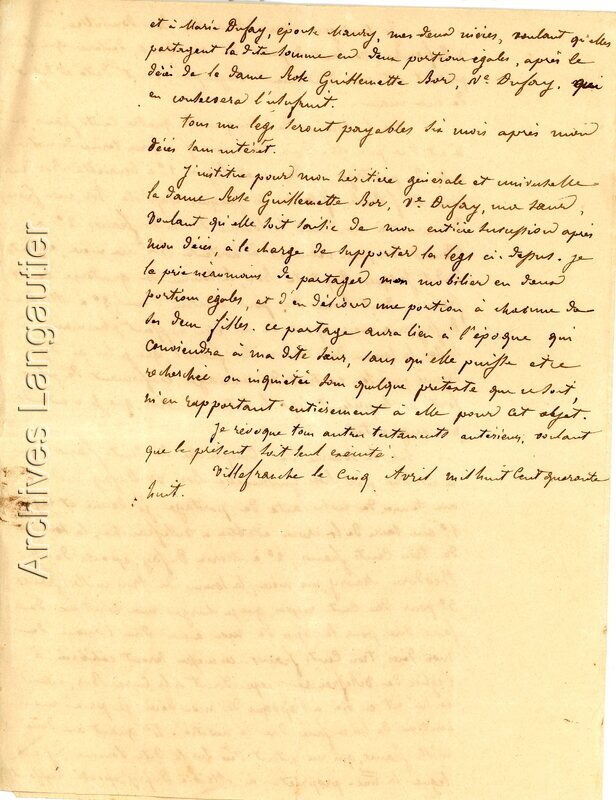 et à Marie Dufay, épouse Maury, mes deux nièces, voulant qu'elles
partagent la dite somme en deux portions égales, après le
décès de la dame Rose Guillemette Bor, Ve Dufay, qui
en conservera l'usufruit.
tous mes legs seront payables six mois après mon
décès sans intérêt.
J'institue pour mon héritière générale et universelle
la dame Rose Guillemette Bor, Ve Dufay, ma sœur,
voulant qu'elle soit saisie de mon entière succession après
mon décès, à la charge de supporter les legs ci-dessus. je
la prie néanmoins de partager mon mobilier en deux
portions égales, et d'en délivrer une portion à chacune de
ses deux filles. ce partage aura lieu à l'époque qui
conviendra à ma dite sœur, sans qu'elle puisse etre
recherchée ou inquiétée sous quelque pretexte que ce soit,
m'en rapportant entièrement à elle pour cet objet.
Je révoque tous autres testaments antérieurs, voulant
que le présent soit seul exécuté.
Villefranche le cinq Avril mil huit cent quarante
huit.
Archives Langautier